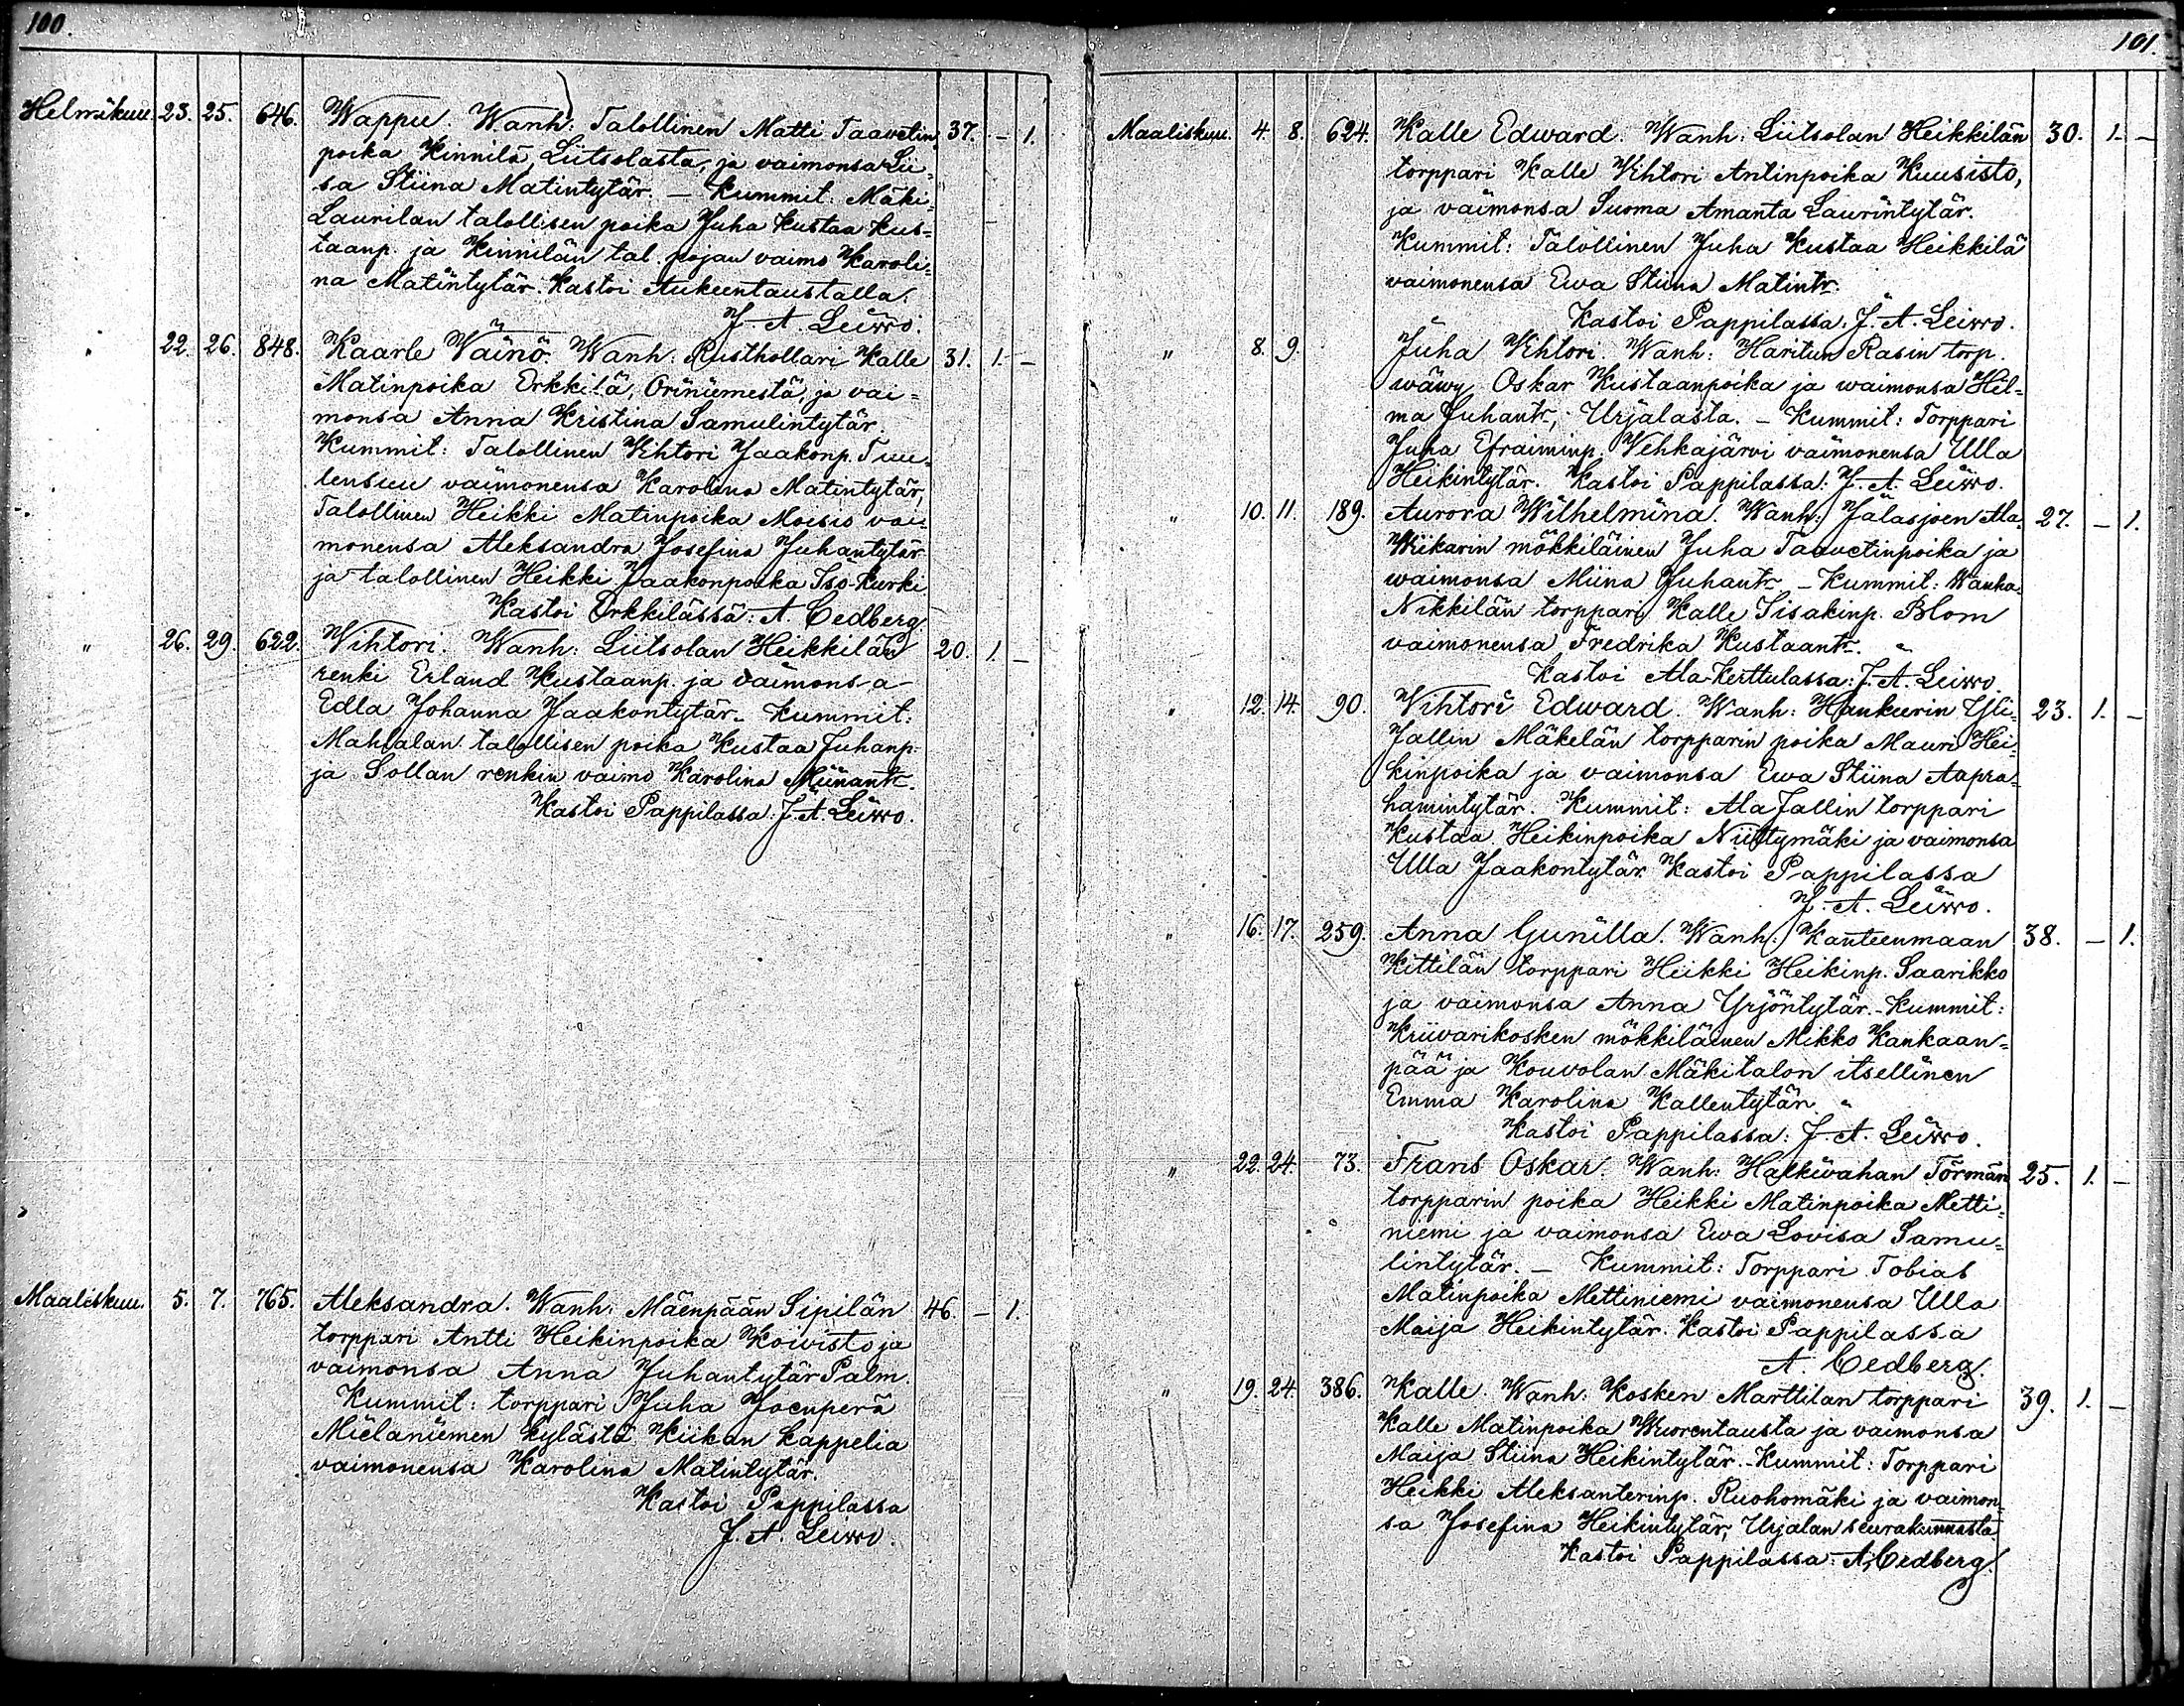 100.
Helmikuu. 23. 25. 646. Wappu. Wanh: Talollinen Matti Taavetin- 37. - 1.
poika Kinnilä, Liitsolasta, ja vaimonsa Lii-
sa Stiina Matintytär. - Kummit: Mäki-
Laurilan talollisen poika Juha Kustaa Kus-
taanp. ja Kinnilän tal. pojan vaimo Karoli-
na Matintytär. Kastoi Aukeentaustalla:
J. A. Leivo.
" 22. 26. 848. Kaarle Väinö. Wanh: Rusthollari Kalle 31. 1. -
Matinpoika Erkkilä, Oriniemestä, ja vai-
monsa Anna Kristina Samulintytär.
Kummit: Talollinen Vihtori Jaakonp. Tuu-
lensuu vaimonensa Karolina Matintytär,
Talollinen Heikki Matinpoika Moisio vai-
monensa Aleksandra Josefina Juhantytär
ja talollinen Heikki Jaakonpoika Iso-Kurki
Kastoi Erkkilässä: A. Cedberg
" 26. 29. 622. Vihtori. Wanh: Liitsolan Heikkilän 20. 1. -
renki Erland Kustaanp. ja vaimonsa
Edla Johanna Jaakontytär. Kummit:
Mahlalan talollisen poika Kustaa Juhanp.
ja Sollan renkin vaimo Karolina
Kastoi Pappilassa: J. A. Leivo.
Maaliskuu. 5. 7. 765. Aleksandra. Wanh: Mäenpään Sipilän 46. - 1.
torppari Antti Heikinpoika Koivisto ja
vaimonsa Anna Juhantytär Palm.
Kummit: torppari Juha Joenperä
Mielaniemen kylästä Kiikan kappelia
vaimonensa Karolina Matintytär.
Kastoi Pappilassa
J. A. Leivo.
101.
Maaliskuu. 4. 8. 624. Kalle Edward. Wanh: Liitsolan Heikkilän 30. 1. -
torppari Kalle Vihtori Antinpoika Kuusisto,
ja vaimonsa Suoma Amanta Laurintytär.
Kummit: Talollinen Juha Kustaa Heikkilä
vaimonensa Ewa Stiina Matintr.
Kastoi Pappilassa: J. A. Leivo.
" 8. 9. Juha Vihtori. Wanh: Haritun Rasin torp.
wäwy Oskar Kustaanpoika ja waimonsa Hil-
ma Juhantr, Urjalasta. - Kummit: Torppari
Juha Efraiminp. Vehkajärvi vaimonensa Ulla
Heikintytär. Kastoi Pappilassa: J. A. Leivo.
" 10. 11. 189. Aurora Wilhelmina. Wanh: Jalasjoen Ala- 27. - 1.
Wiikarin mökkiläinen Juha Taavetinpoika ja
waimonsa Miina Juhantr - Kummit: Wanha-
Nikkilän torppari Kalle Iisakinp. Blom
vaimonensa Fredrika Kustaantr.
Kastoi Ala-Kerttulassa: J. A. Leivo.
" 12. 14. 90. Vihtori Edward. Wanh: Hankurin Yli- 23. 1. -
Jallin Mäkelän torpparin poika Mauri Hei-
kinpoika ja vaimonsa Ewa Stiina Aapra-
hamintytär. Kummit: Ala Jallin torppari
Kustaa Heikinpoika Niittymäki ja vaimonsa
Ulla Jaakontytär. Kastoi Pappilassa
J. A. Leivo.
" 16. 17. 259. Anna Gunilla. Wanh: Kanteenmaan 38. - 1.
Kittilän torppari Heikki Heikinp. Saarikko
ja vaimonsa Anna Yrjöntytär. - Kummit:
Kriivarikosken mökkiläinen Mikko Kankaan-
pää ja Kouvolan Mäkitalon itsellinen
Emma Karolina Kallentytär.
Kastoi Pappilassa: J. A. Leivo.
" 22. 24. 73. Frans Oskar. Wanh: Halkivahan Törmän 25. 1. -
torpparin poika Heikki Matinpoika Metti-
niemi ja vaimonsa Ewa Lovisa Samu-
lintytär. - Kummit: Torppari Tobias
Matinpoika Mettiniemi vaimonensa Ulla
Maija Heikintytär. Kastoi Pappilassa
A. Cedberg.
" 19. 24. 386. Kalle. Wanh: Kosken Marttilan torppari 39. 1. -
Kalle Matinpoika Wuorentausta ja vaimonsa
Maija Stiina Heikintytär. - Kummit: Torppari
Heikki Aleksanterinp. Ruohomäki ja vaimon-
sa Josefina Heikintytär, Urjalan seurakunnasta
Kastoi Pappilassa: A. Cedberg.